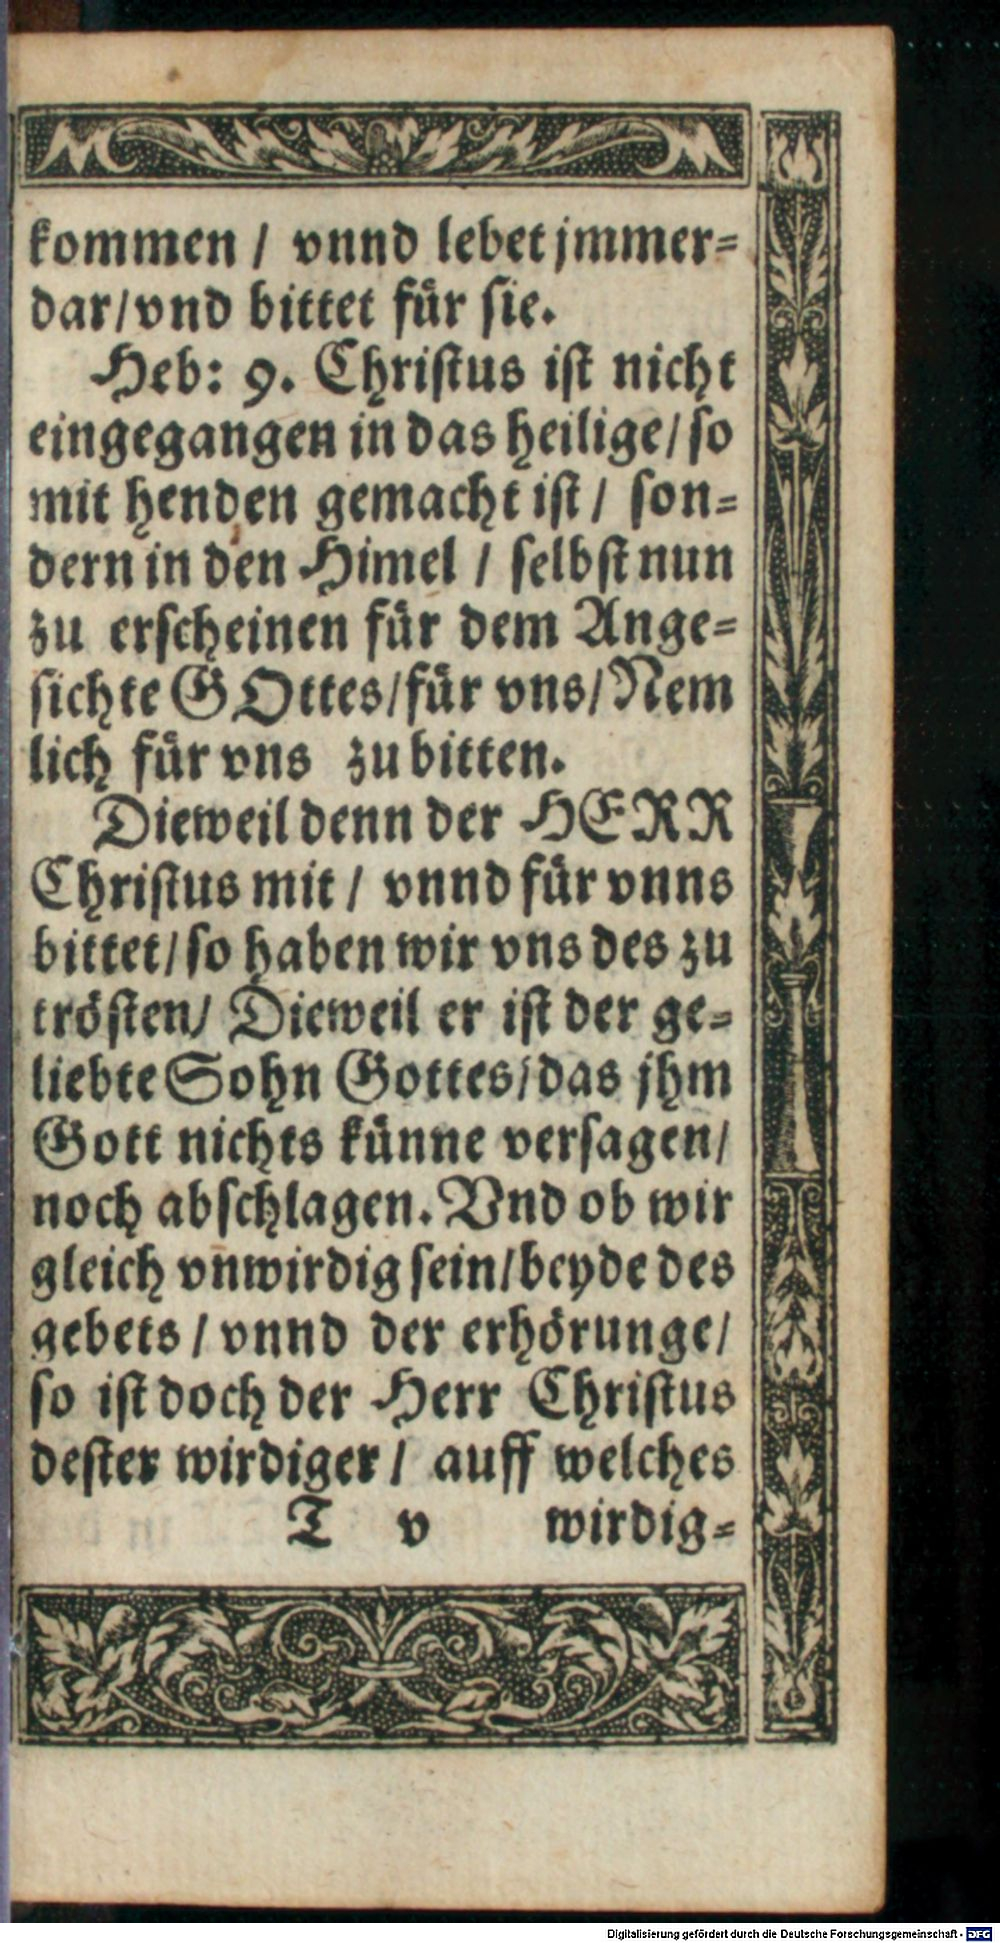 kommen / vnnd lebet jmmer=
dar/vnd bittet für sie.
Heb: 9. Christus ist nicht
eingegangen in das heilige/ so
mit henden gemacht ist / son=
dern in den Himel / selbst nun
zu erscheinen für dem Ange=
sichte GOttes/für vns/Nem
lich für vns zu bitten.
Dieweil denn der HERR
Christus mit / vnnd für vnns
bittet/ so haben wir vns des zu
trösten/ Dieweil er ist der ge=
liebte Sohn Gottes/das jhm
Gott nichts künne versagen/
noch abschlagen. Vnd ob wir
gleich vnwirdig sein/beyde des
gebets / vnnd der erhörunge/
so ist doch der Herr Christus
dester wirdiger / auff welches
T v wirdig=
Digitalisierung gefördert durch die Deutsche Forschungsgemeinschaft - DFG